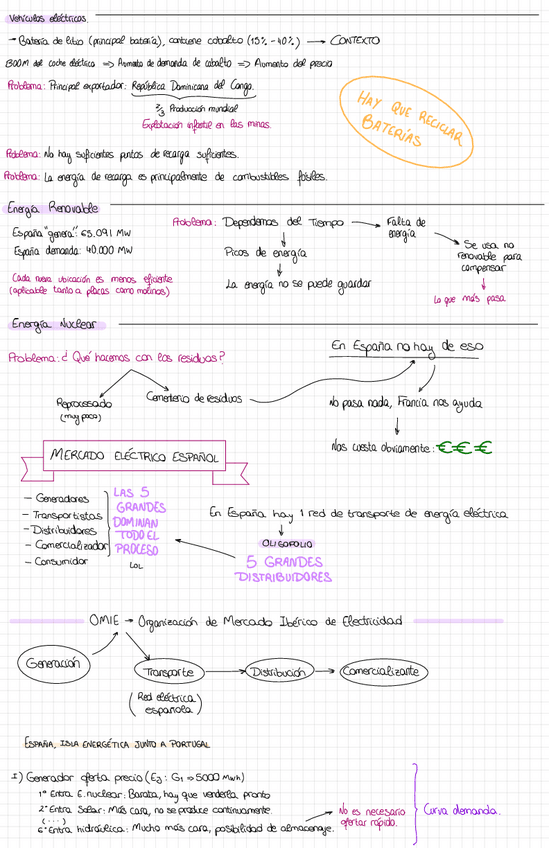 Vehículos eléctricos
- Batería de litio (principal batería), contiene cobalto (15% - 40%) → CONTEXTO
BOOM del coche eléctrico => Aumento de demanda de cobalto => Aumento del precio
Problema: Principal exportador: República Dominicana del Congo.
2/3 Producción mundial
Explotación infantil en las minas.
HAY QUE RECICLAR
BATERÍAS
Problema: No hay suficientes puntos de recarga suficientes.
Problema: La energía de recarga es principalmente de combustibles fósiles.
Energía Renovable
España "genera": 65.091 MW
España demanda: 40.000 MW
Cada nueva ubicación es menos eficiente
(aplicable tanto a placas como molinos)
Problema: Dependemos del Tiempo → Falta de
energía
Picos de energía
La energía no se puede guardar
Se usa no
renovable para
compensar
Lo que más pasa
Energía Nuclear
Problema: ¿Qué hacemos con los residuos?
Reprocesado
(muy poco)
Cementerio de residuos
En España no hay de eso
No pasa nada, Francia nos ayuda
Nos cuesta obviamente: € € €
MERCADO ELÉCTRICO ESPAÑOL
- Generadores
- Transportistas
- Distribuidores
- Comercializador
- Consumidor
LAS 5
GRANDES
DOMINAN
TODO EL
PROCESO
LOL
En España hay 1 red de transporte de energía eléctrica
OLIGOPOLIO
5 GRANDES
DISTRIBUIDORES
OMIE → Organización de Mercado Ibérico de Electricidad
Generación
Transporte
(Red eléctrica
española)
Distribución
Comercializante
ESPAÑA, ISLA ENERGÉTICA JUNTO A PORTUGAL
I) Generador oferta precio (Ej: G1 => 5000 MWh)
1º Entra E. nuclear: Barata, hay que venderla pronto
2º Entra Solar: Más cara, no se produce continuamente.
(...)
6º Entra hidráulica: Mucho más cara, posibilidad de almacenaje.
No es necesario
ofertar rápido.
Curva demanda.